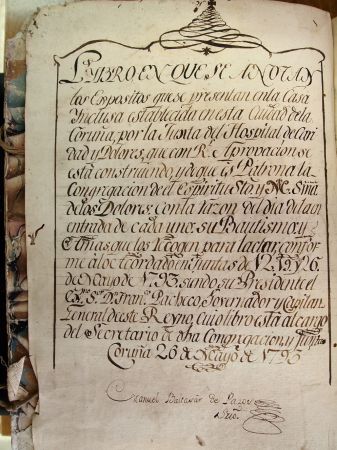 LIBRO EN QUE SE ANOTAN
los Expositos que se presentan en la Casa
Ynclusa establecida en esta Ciudad de la
Coruña, por la Junta del Hospital de Cari
dad y Dolores, que con Rl. Aprovacion se
está construiendo y de que es Patrona la
Congregacion de el Espiritu Sto. y Ntra. Sñra.
de los Dolores: con la razon del dia de la
entrada de cada uno, su Bautismo, y
Amas, que los recogen para lactar, confor
me à lo acordado en Juntas de 12. y 26.
de Mayo de 1793. siendo su Presidente el
Exmo. Sr. Dn. Franco. Pacheco Governador, y Capitan
General de este Reyno, cuio libro está al cargo
del Secretario de dha Congregacion, y Junta
Coruña 26 de Mayo de 1793
Manuel Baltasar de Pazos
Srio.